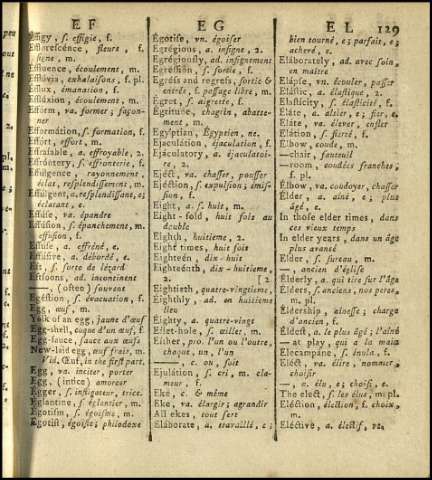 EF
EG
EL 129
Effigy, s. effigie, f.
Efflorescence, fleure, f.
signe, m.
Effluence, écoulement, m.
Effluvia, exhalaisons, f. pl.
Efflux, émanation, f.
Effluxion, écoulement, m.
Efform, va. former; façon-
ner
Efformátion, s. formation, f.
Effort, effort, m.
Effráiable, a. effroyable, 2.
Effróntery, s. effronterie, f.
Effulgence, rayonnement,
éclat, resplendissement, m.
Effulgent, a. resplendissant, e;
éclatant, e.
Effúse, va. épandre
Effúsion, s. épanchement, m.
effusion, f.
Effuse, a. effréné, e.
Effúsive, a. débordé, e.
Eft, s. sorte de lézard
Eftsoons, ad. incontinent
—, (often) souvent
Egéstion, s. évacuation, f.
Egg, œuf, m.
Yolk of an egg, jaune d'œuf
Egg-shell, coque d'un œuf, f.
Egg-sauce, sauce aux œufs
New-laid egg, œuf frais, m.
Vid. Œuf, in the first part.
Egg, va. inciter, porter
Egg, (intice) amorcer
Egger, s. instigateur, trice.
Eglantine, s. églantier, m.
Egotism, s. égoïsme, m.
Egotist, égoïste; philodoxe
Egotise, vn. égoiser
Egrégious, a. insigne, 2.
Egrégiously, ad. insignement
Egréssion, s. sortie, f.
Egréss and regréss, sortie &
entrée, f. passage libre, m.
Egret, s. aigrette, f.
Egritude, chagrin, abatte-
ment, m.
Egy'ptian, Egyptien, ne.
Ejaculátion, éjaculation, f.
Ejáculatory, a. éjaculatoi-
re, 2.
Ejéct, va. chasser, pousser
Ejéction, s. expulsion; émis-
sion, f.
Eight, a. s. huit, m.
Eight-fold, huit fois au
double
Eighth, huitieme, 2.
Eight times, huit fois
Eightéen, dix-huit
Eighteénth, dix-huitieme,
2. [2
Eightieth, quatre-vingtieme,
Eighthly, ad. en huitieme
lieu
Eighty, a. quatre-vingt
Eilet-hole, s. œillet, m.
Either, pro. l'un ou l'autre,
chaque, un, l'un
—, c. ou, soit
Ejulátion, s. cri, m. cla-
meur, f.
Eke, c. & même
Eke, va. élargir; agrandir
All ekes, tout sert
Eláborate, a. travaillé, e;
bien tourné, e; parfait, e;
achevé, e.
Eláborately, ad. avec soin,
en maître
Elápse, vn. écouler, passer
Elástic, a. élastique, 2.
Elasticity, s. élasticité, f.
Eláte, a. altier, e; fier, e.
Eláte, va. élever, enfler
Elátion, s. fierté, f.
Elbow, coude, m.
—chair, fauteuil
—room, coudées franches,
f. pl.
Elbow, va. coudoyer, chasser
Elder, a. ainé, e; plus
âgé, e.
In those elder times, dans
ces vieux temps
In elder years, dans un âge
plus avancé
Elder, s. sureau, m.
—, ancien d'église
Elderly, a. qui tire sur l'âge
Elders, s. anciens, nos peres,
m. pl.
Eldership, ainesse; charge
d'ancien, f.
Eldest, a. le plus âgé; l'aîné
—at play, qui a la main
Elecampáne, s. énula, f.
Eléct, va. élire, nommer,
choisir
—, a. élu, e; choisi, e.
The elect, s. les élus, m. pl.
Eléction, élection, f. choix,
m.
Eléctive, a. électif, ve.